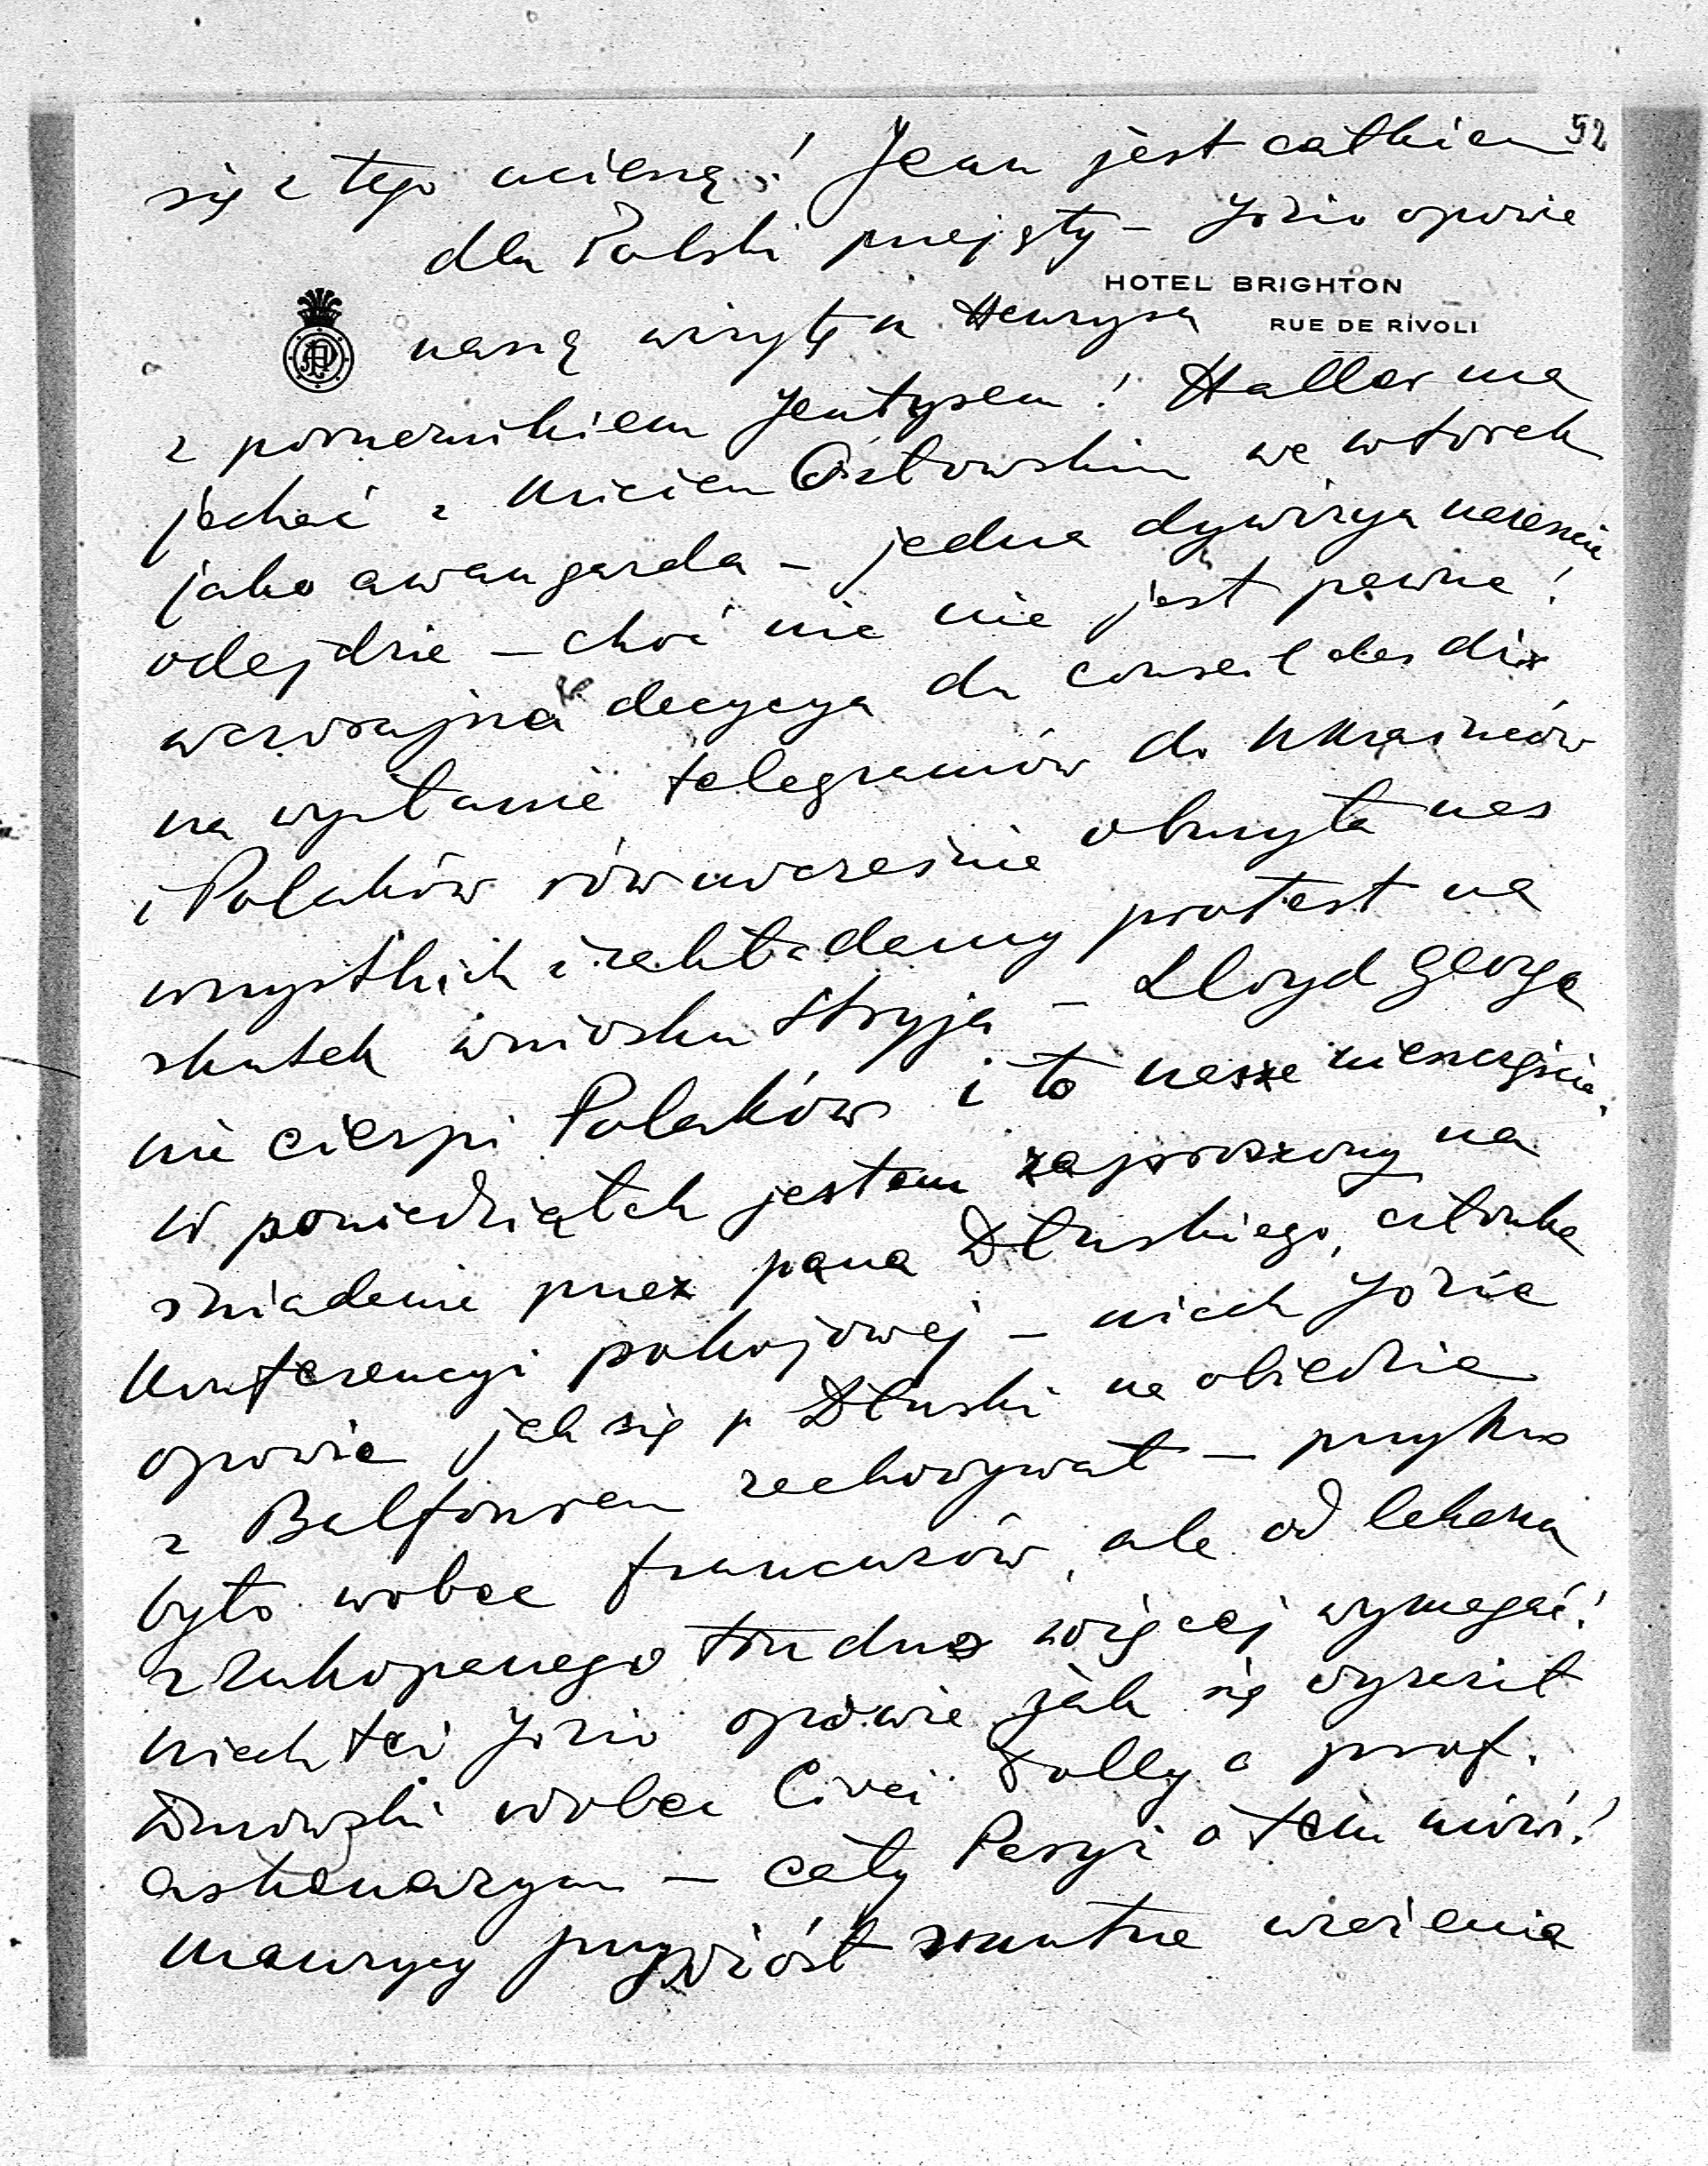 52
się z tego ucieszą! Jean jest całkiem
dla Polski przejęty – Józio opowie
HOTEL BRIGHTON
RUE DE RIVOLI
naszą wizytę u Henrysa
z porucznikiem Jentysem! Haller ma
jechać z Miciem Ostrowskim we wtorek
jako awangarda – jedna dywizya nareszcie
odejdzie – choć nic nie jest pewne!
wczorajsza decyzya du conseil des dix
na wysłanie telegramów do Ukraińców
i Polaków równocześnie oburzyła nas
wszystkich i zakładamy protest na
skutek wniosku Stryja – Lloyd George
nie cierpi Polaków i to nasze nieszczęście.
W poniedziałek jestem zaproszony na
śniadanie przez pana Dłuskiego, członka
Konferencyi pokojowej – niech Józio
opowie jak się p Dłuski na obiedzie
z Balfourem zachowywał – przykro
było wobec francuzów, ale od lekarza
z Zakopanego trudno więcej wymagać!
niech też Józio opowie jak się wyraził
Dmowski wobec Cioci Dolly o prof.
Askenazym – cały Paryż o tem mówi!
Maurycy przywiózł smutne wrażenia